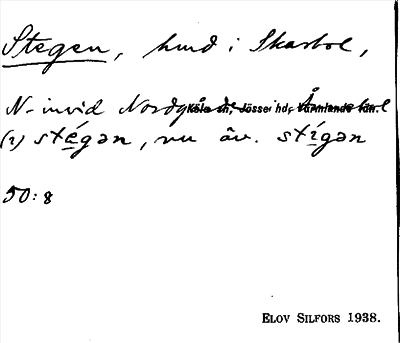 Stegen, hmd i Skarbol,
N. invid Nordgårde
Köla sn, Jösse hd, Värmlands län.
(1) stégən, nu äv. stígən
50:8
ELOV SILFORS 1938.